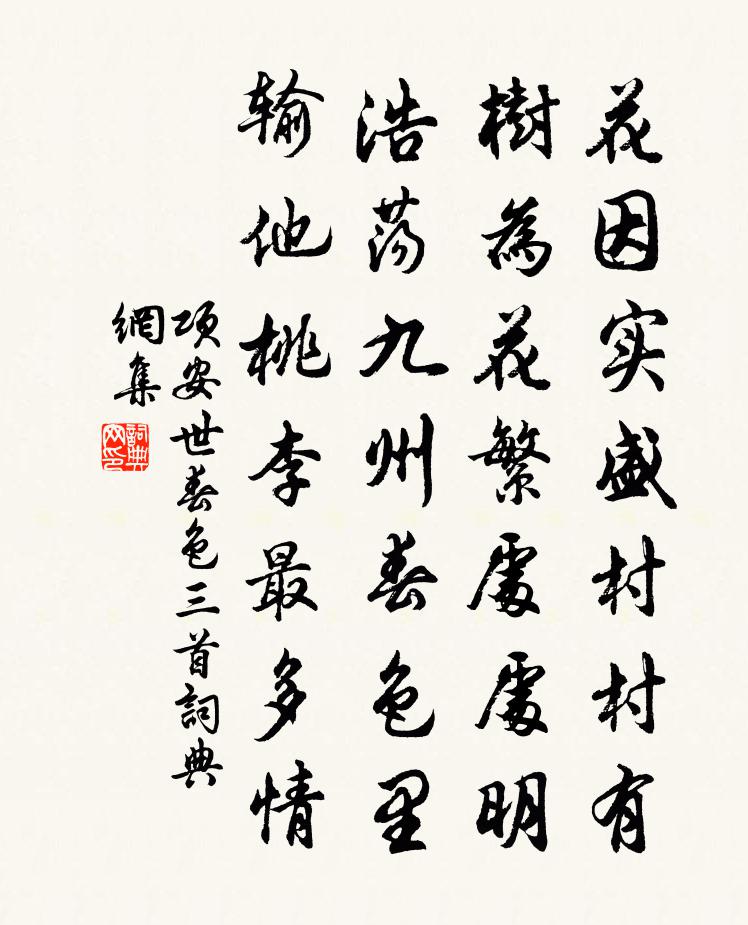 花因实盛村村有
樹為花繁處處明
浩荡九州春色里
输他桃李最多情
项安世春色三首詞典
網集
詞典
网印